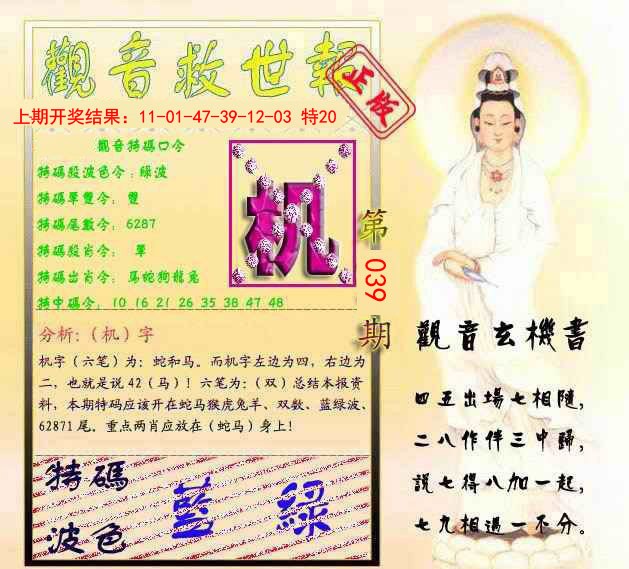 觀音救世報
正版
上期开奖结果：11-01-47-39-12-03 特20
觀音特碼口令
特碼段波色令：綠波
特碼單雙令： 雙
特碼尾數令： 6287
特碼段肖令： 單
特碼出肖令： 馬蛇狗龍兔
特中碼令： 10 16 21 26 35 38 47 48
机
第
039
期
分析:（机）字
机字（六笔）为: 蛇和马。而机字左边为四，右边为
二，也就是说42（马）！六笔为:（双）总结本报资
料，本期特码应该开在蛇马猴虎兔羊、双数、蓝绿波、
62871尾。重点两肖应放在（蛇马）身上！
特碼
波色
藍 綠
觀音玄機書
四五出場七相隨，
二八作伴三中歸，
說七得八加一起，
七九相遇一不分。